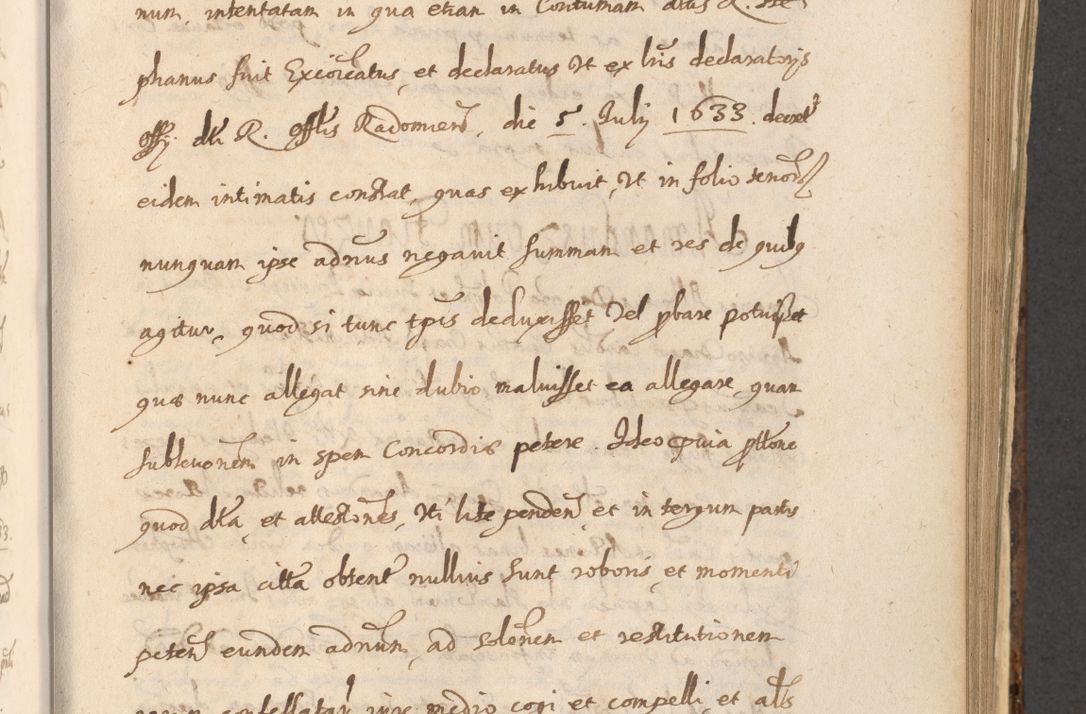 num, intentatam in qua etiam in Contumam dtus R. Ste
phanus fuit Excoĩcatus, et declaratus Ut ex lris declaratorijs
offij dti R. Offlis Radomien, die 5. Iulij 1633. decret
eidem intimatis constat, quas exhibuit, Ut in folio tenor
nunquam ipse adrius negavit summam et res de quibq
agitur, quod si tunc tpis deduxisset Vel pbare potuisset
quæ nunc allegat sine dubio maluisset ea allegare, quam
sublevonem in spem Concordiæ petere. Ideoq quia pttone
quod dta, et attestones, Uti lite penden et in tergum partis
nec ipsa citta obtent nullius sunt roboris, et momenti
peten eundem adrium, ad solonem et restitutionem
rerum confessatar iure medio cogi et compelli, et als